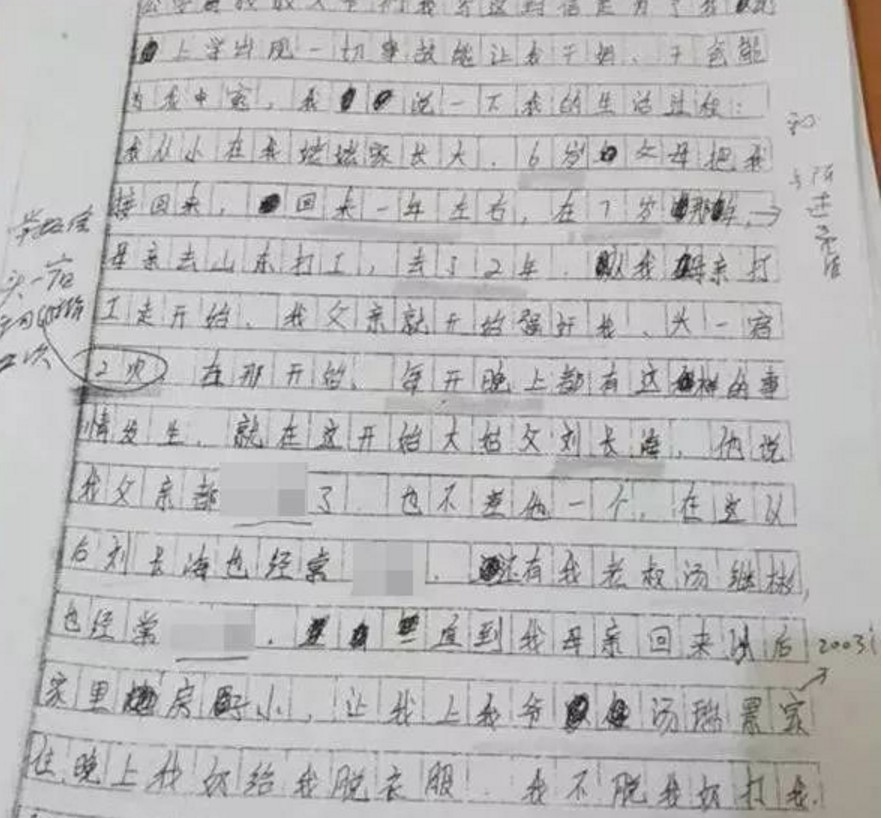 上学出现一切事故能让我干妈、干爸能
为我申冤，我说一下我的生活过程：
我从小在我姥姥家长大。6岁父母把我
接回来，回来一年左右，在7岁那年，
母亲去山东打工，去了2年。从我母亲打
工走开始、我父亲就开始强奸我、头一宿
2次。在那开始、每天晚上都有这样的事
情发生。就在这开始大姑父刘长海，他说
我父亲都 了 也不差他一个，在这以
后刘长海也经常 。还有我老叔汤继彬，
也经常 。直到我母亲回来以后
2003
家里房子小，让我上我爷汤瑞景家
住晚上我奶给我脱衣服 我不脱我奶打我.
头一宿
2次